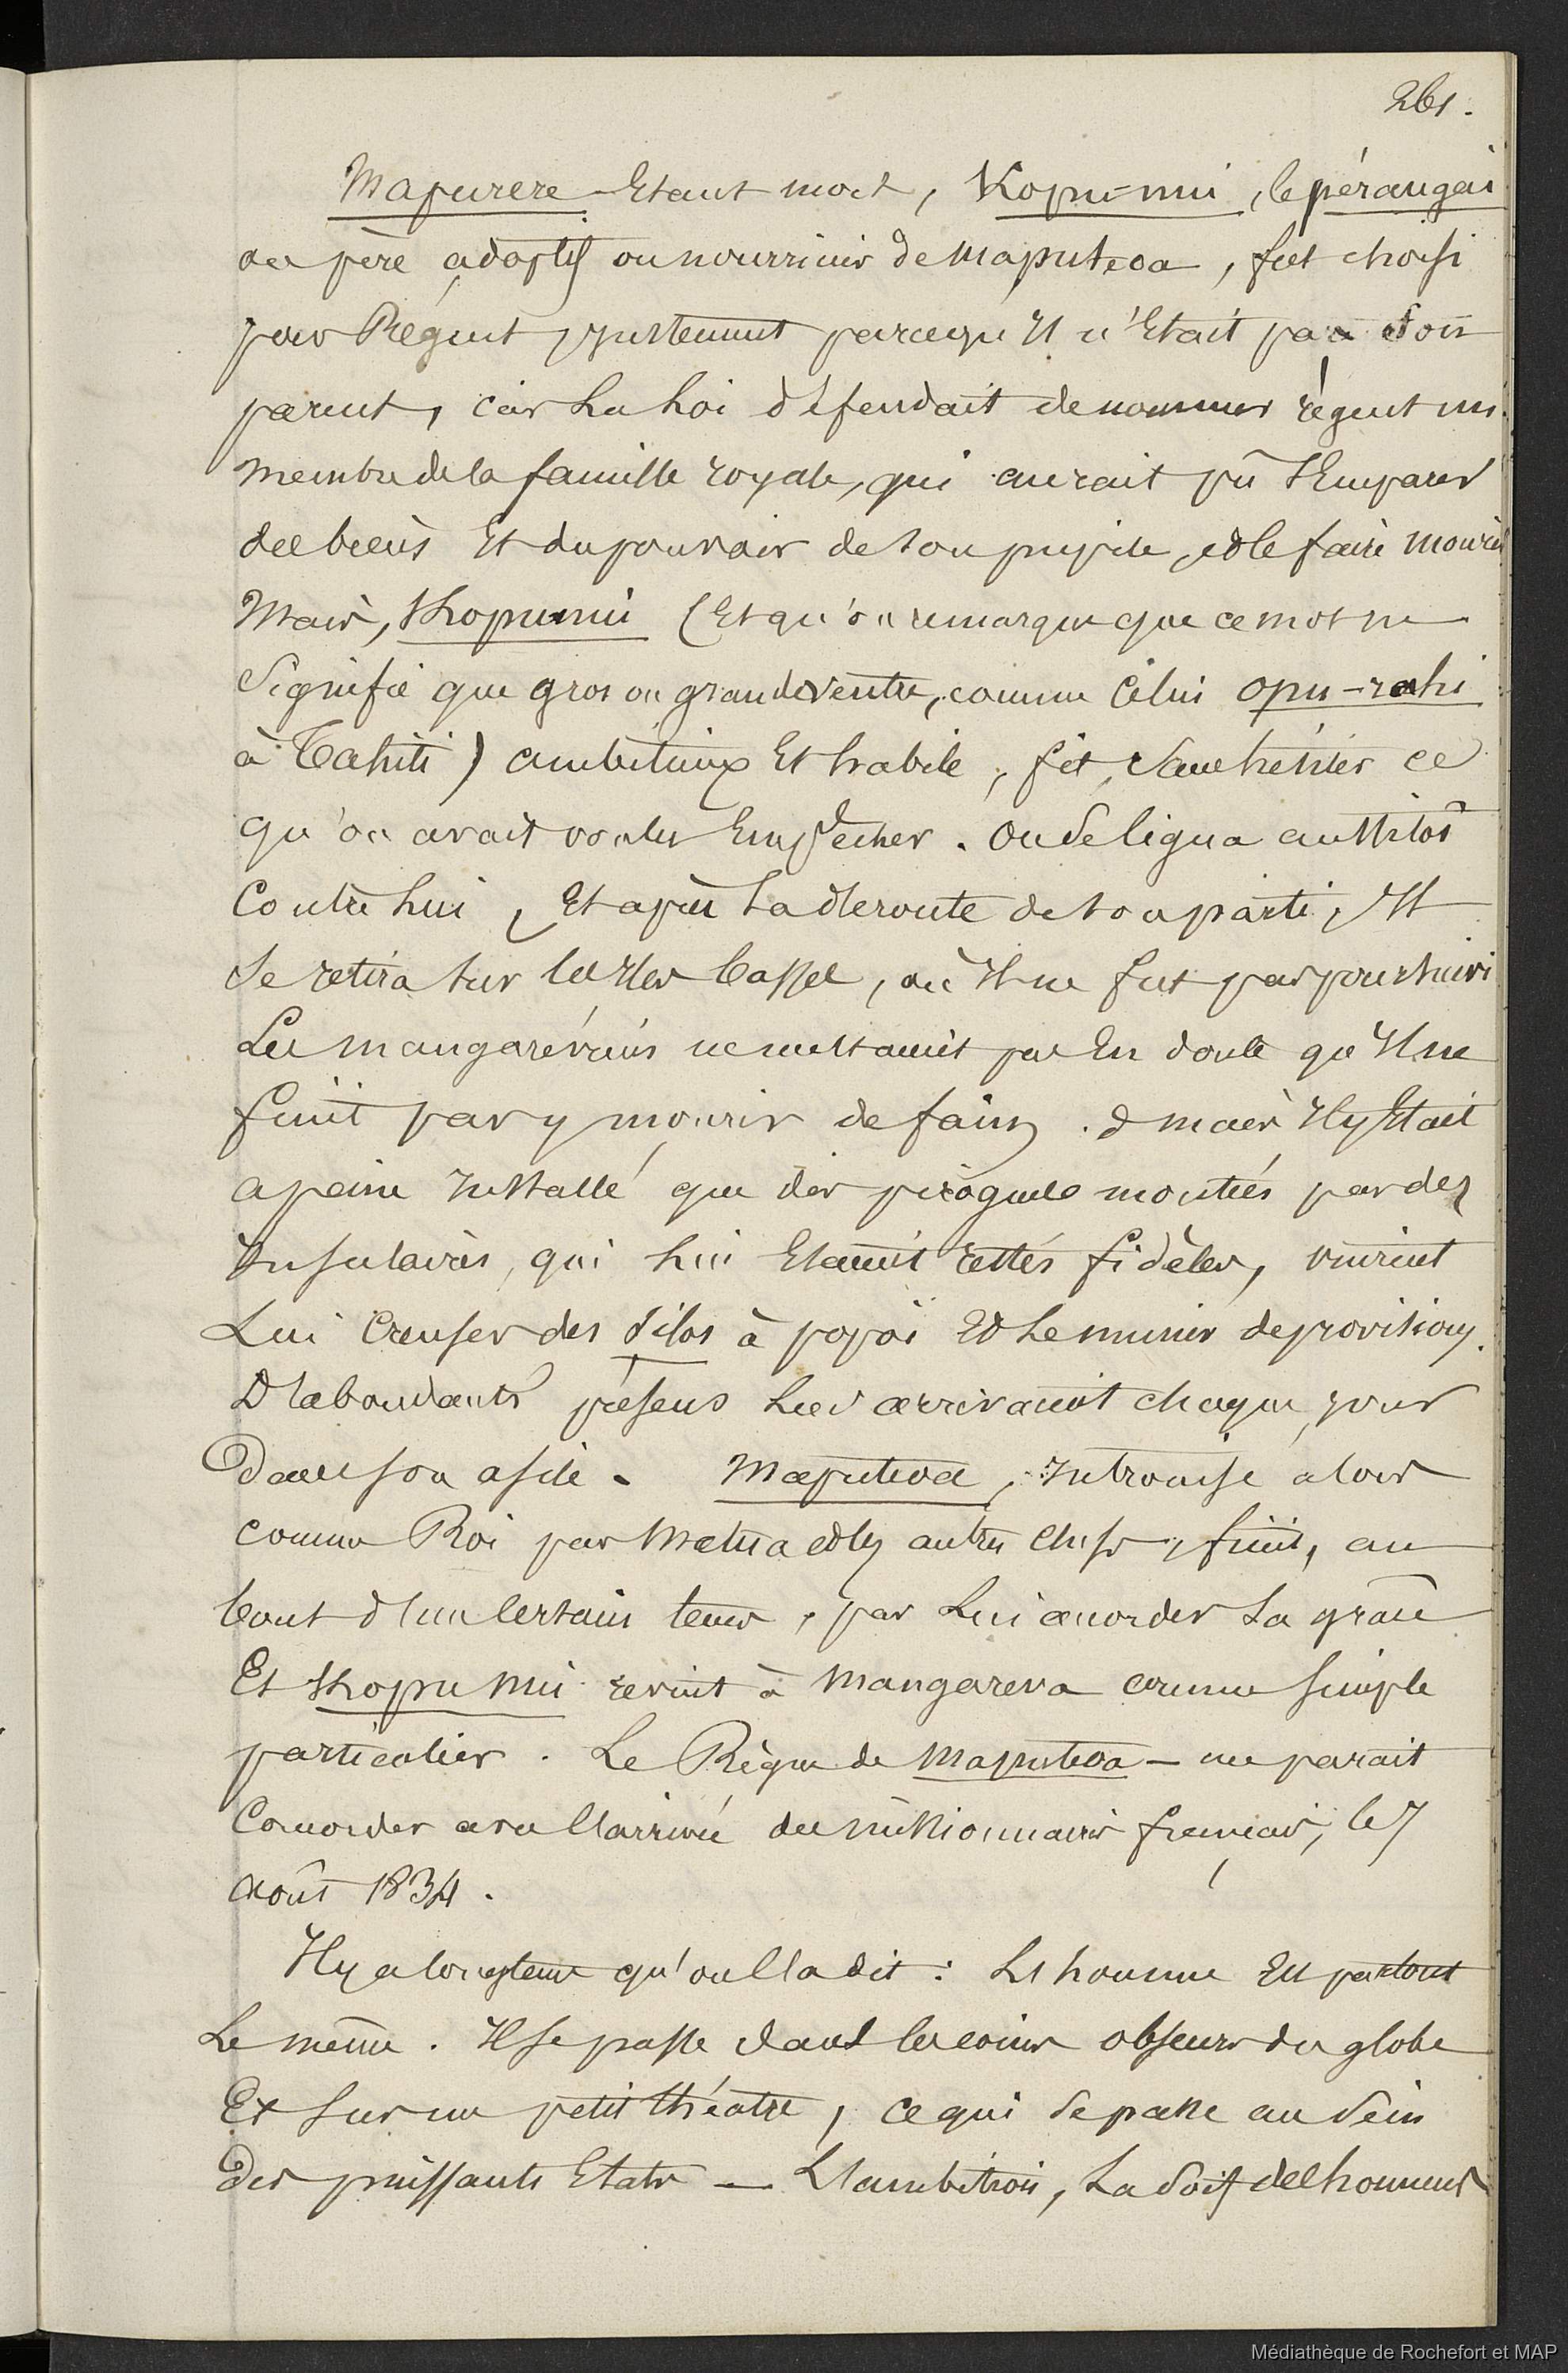 261.
Mapurere Etant mort, Kopu-mui, le pérangai
ou père adoptif ou nourricier de Maputeoa, fut choisi
pour Régent justement parcequ'Il n'Etait pas son
parent, car La Loi défendait de nommer régent un
membre de la famille royale, qui aurait pû s'Emparer
des biens Et du pouvoir de son pupile, et le faire mourir
Mais, Kopumui (Et qu'on remarque que ce mot ne
signifie que gros ou grand ventre, comme celui opu-rahi
à Tahiti) ambitieux Et habile, fit, sans hésiter ce
qu'on avait voulu Empêcher. On se ligua aussitôt
Contre Lui, Et après La déroute de son parti, Il
se retira sur les Iles basses, où Il ne fut pas poursuivi
Les mangaréviens ne mettaient pas En doute qu'Il ne
finit par y mourir de faim. mais Il y Etait
a peine Installé que des pirogues montées par des
Insulaires, qui Lui Etaient restés fidèles, vinrent
Lui Creuser des silos à popoi Et Le munir de provisions.
D'abondants présens Lui arrivaient chaque jour
Dans son asile. Maputeoa, Intronisé alors
comme Roi par Matua et les autres chefs, finit, au
bout d'un Certain tems, par Lui accorder sa grâce
Et Kopu mui revint à Mangareva comme simple
particulier. Le Règne de Maputeoa – me parait
Concorder avec l'arrivée des missionnaires français, le 7
août 1834.
Il y a longtems qu'on l'a dit : L'homme Est partout
Le même. Il se passe dans les coins obscurs du globe
Et sur un petit théatre, ce qui se passe au sein
Des puissants Etats — L'ambition, La soif des honneurs
Médiathèque de Rochefort et MAP